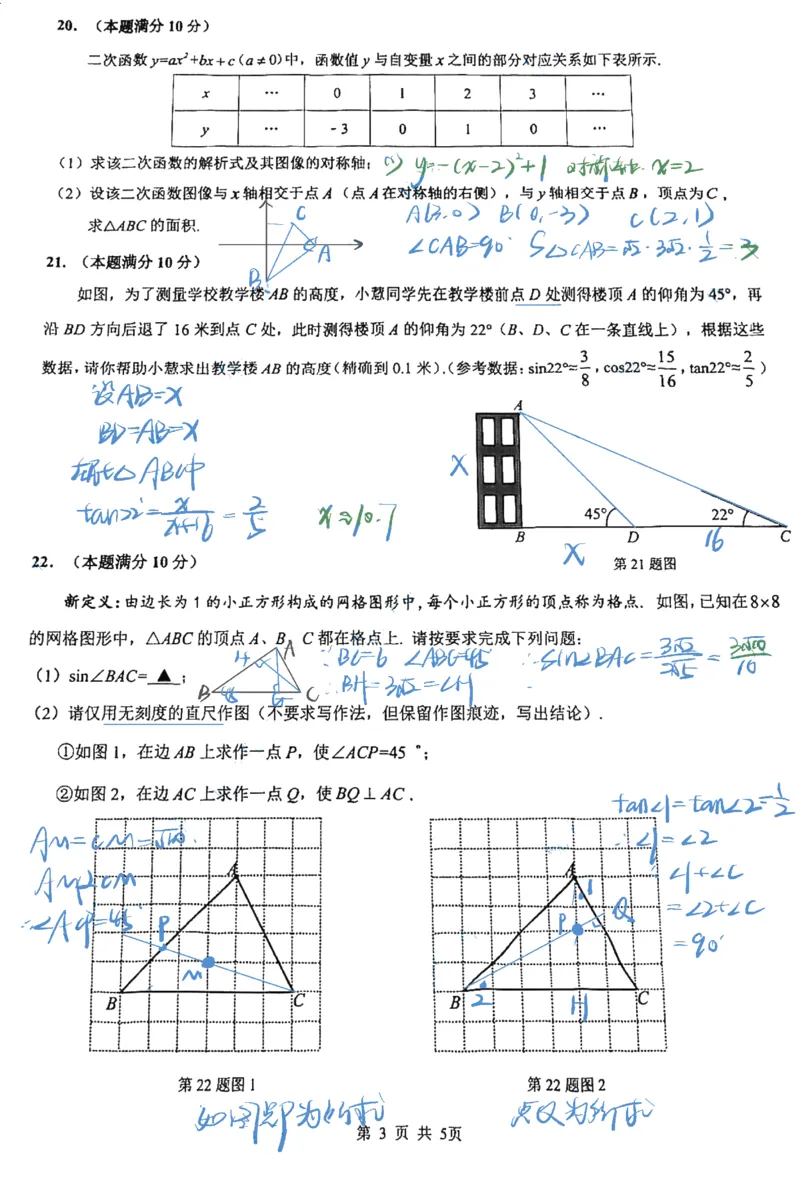 20. （本题满分 10 分）
二次函数 y=ax²+bx+c（a≠0)中，函数值 y 与自变量 x 之间的部分对应关系如下表所示.
x … 0 1 2 3 …
y … -3 0 1 0 …
（1）求该二次函数的解析式及其图像的对称轴；
(1) y=-(x-2)²+1 对称轴 x=2
（2）设该二次函数图像与 x 轴相交于点 A（点 A 在对称轴的右侧），与 y 轴相交于点 B，顶点为 C，
求△ABC 的面积.
A(3,0) B(0,-3) C(2,1)
∠CAB=90° S△CAB=√2·3√2·1/2=3
C
A
B
21. （本题满分 10 分）
如图，为了测量学校教学楼 AB 的高度，小慧同学先在教学楼前点 D 处测得楼顶 A 的仰角为 45°，再
沿 BD 方向后退了 16 米到点 C 处，此时测得楼顶 A 的仰角为 22°（B、D、C 在一条直线上），根据这些
数据，请你帮助小慧求出教学楼 AB 的高度（精确到 0.1 米）.（参考数据：sin22°≈3/8，cos22°≈15/16，tan22°≈2/5）
设AB=x
BD=AB=x
在Rt△ABC中
tan22°=x/(x+16)=2/5 x≈10.7
A
x
45° 22°
B D C
x 16
第 21 题图
22. （本题满分 10 分）
新定义：由边长为 1 的小正方形构成的网格图形中，每个小正方形的顶点称为格点. 如图，已知在 8×8
的网格图形中，△ABC 的顶点 A、B、C 都在格点上. 请按要求完成下列问题：
（1）sin∠BAC= ▲ ；
A
H
B 45 C
∵BC=6 ∠ABC=45°
∴BH=3√2=CH
∴sin∠BAC=3√2/2√5=3√10/10
（2）请仅用无刻度的直尺作图（不要求写作法，但保留作图痕迹，写出结论）.
①如图 1，在边 AB 上求作一点 P，使∠ACP=45 °；
②如图 2，在边 AC 上求作一点 Q，使 BQ⊥AC.
AM=CM=√10.
AM⊥CM
∴∠ACP=45°
A
P
M
B C
第 22 题图 1
tan∠1=tan∠2=1/2
∴∠1=∠2
∠1+∠C
=∠2+∠C
=90°
A
1
P Q
B 2 H C
第 22 题图 2
如图即P为所求
点Q为所求
第 3 页 共 5页